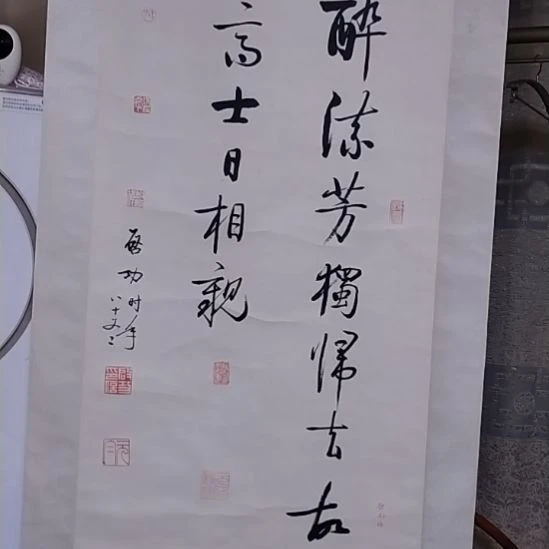 醉流芳獨歸去故
高士日相親
啓功时年
八十又二